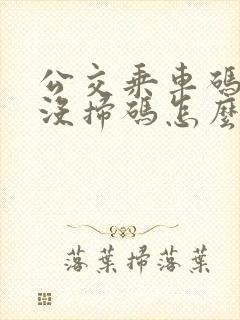 公交乘車碼
沒掃碼怎麼
落葉掃落葉